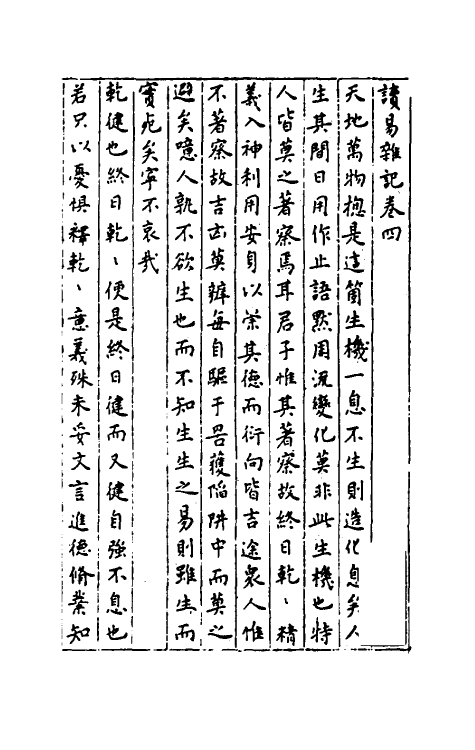 讀易雜記卷四
天地萬物揔是這箇生機一息不生則造化息矣人
生其間日用作止語默周流變化莫非此生機也特
人皆莫之著察焉耳君子惟其著察故終日乾、精
義入神利用安身以崇其德而所向皆吉途眾人惟
不著察故吉凶莫辨每自驅于罟擭陷阱中而莫之
避矣噫人孰不欲生也而不知生生之易則雖生而
實死矣寧不哀哉
乾健也終日乾、便是終日健而又健自強不息也
若只以憂惧釋乾、意義殊未妥文言進德脩業知